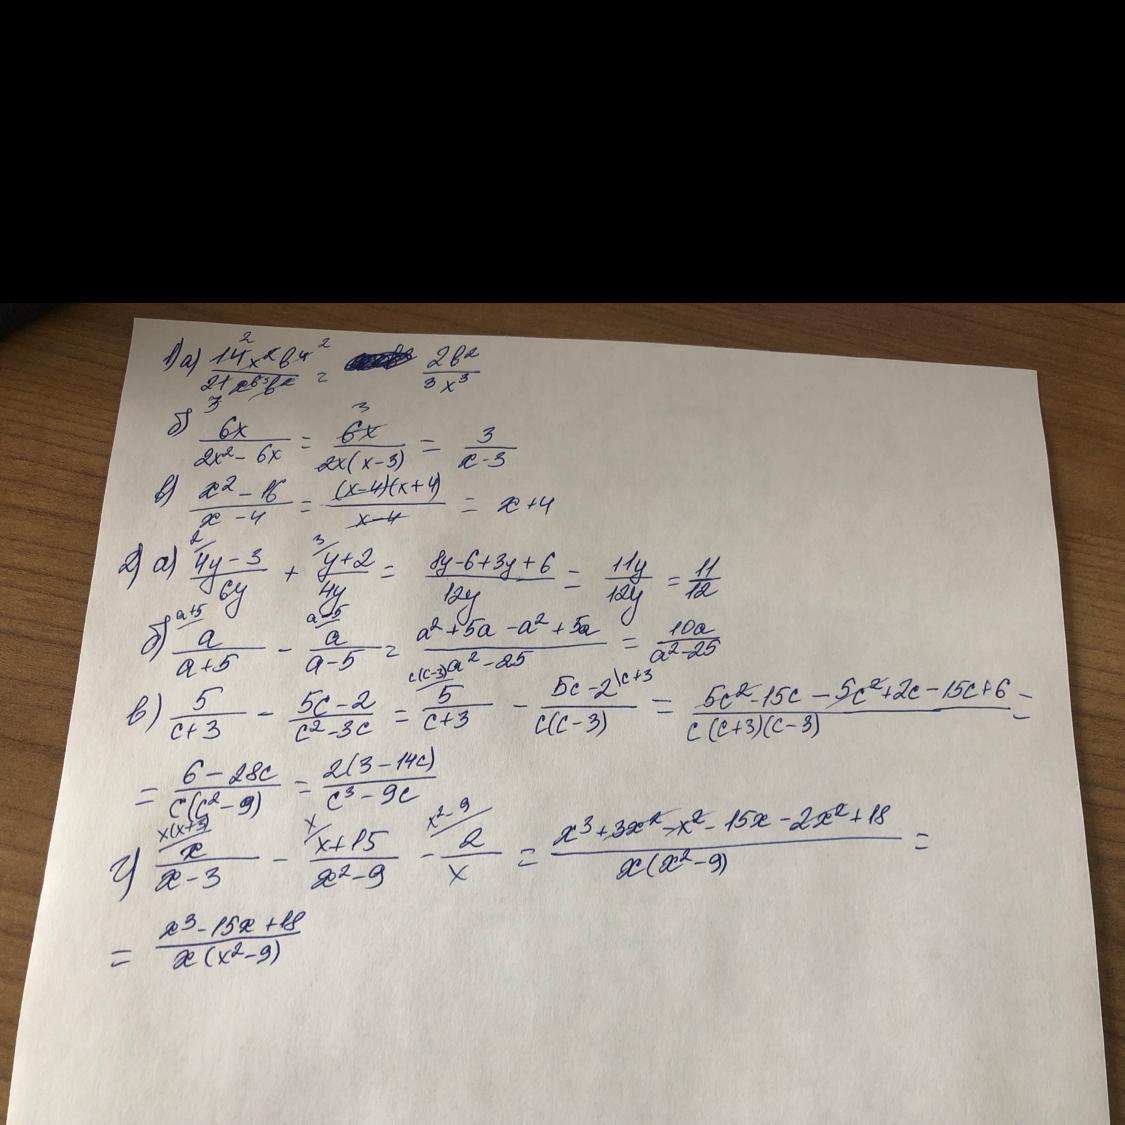 1) а) 14x²b⁴ / 21x⁵b² = 2b² / 3x³
б) 6x / (2x² - 6x) = 6x / 2x(x-3) = 3 / (x-3)
в) (x² - 16) / (x - 4) = (x-4)(x+4) / (x-4) = x+4
2) а) (4y-3) / 6y + (y+2) / 4y = (8y-6+3y+6) / 12y = 11y / 12y = 11/12
б) a / (a+5) - a / (a-5) = (a²+5a-a²+5a) / (a²-25) = 10a / (a²-25)
в) 5 / (c+3) - (5c-2) / (c²-3c) = 5 / (c+3) - (5c-2) / c(c-3) = (5c²-15c-5c²+2c-15c+6) / c(c+3)(c-3) =
= (6-28c) / c(c²-9) = 2(3-14c) / (c³-9c)
г) x / (x-3) - (x+15) / (x²-9) - 2 / x = (x³+3x²-x²-15x-2x²+18) / x(x²-9) =
= (x³-15x+18) / x(x²-9)